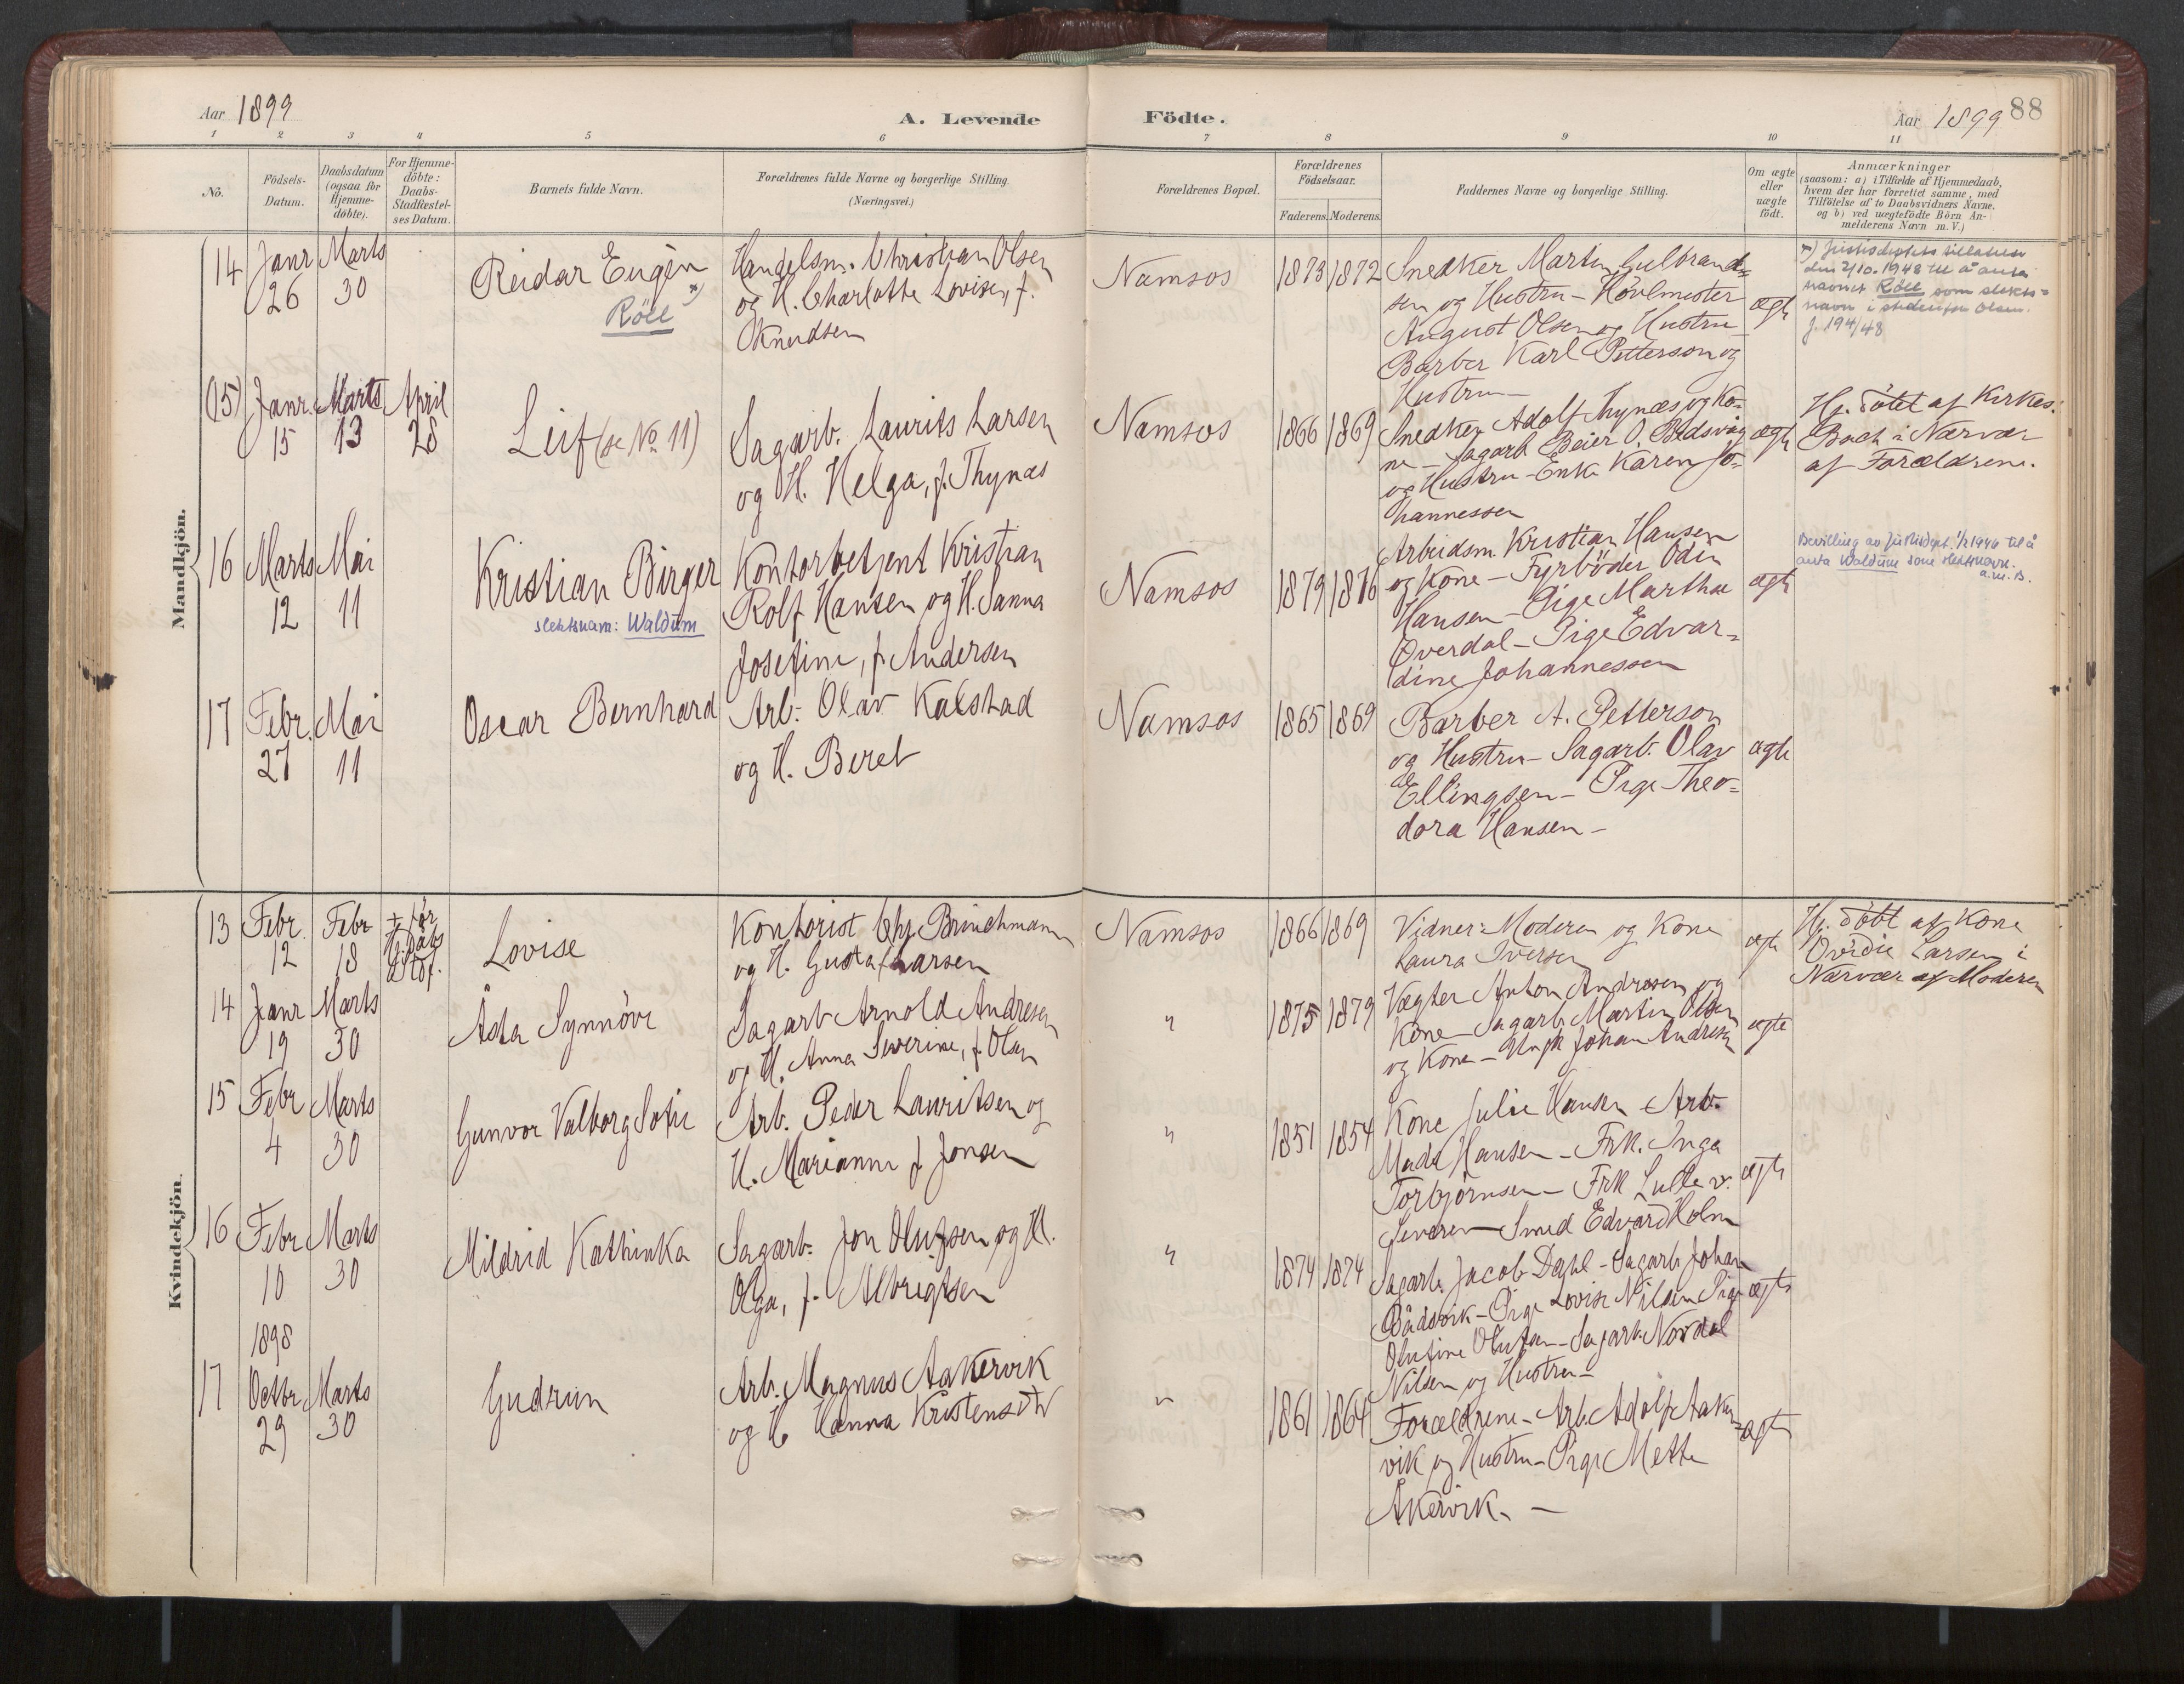 Aar 1899
A. Levende
Födte.
Aar 1899
88
1 2 3 4 5 6 7 8 9 10 11
No.
Födsels-
Datum.
Daabsdatum
(ogsaa for
Hjemme-
döbte).
For Hjemme-
döbte:
Daabs-
Stadfæstel-
ses Datum.
Barnets fulde Navn.
Forældrenes fulde Navne og borgerlige Stilling.
(Næringsvei.)
Forældrenes Bopæl.
Forældrenes
Födselsaar.
Faderens. Moderens.
Faddernes Navne og borgerlige Stilling.
Om ægte
eller
uægte
födt.
Anmærkninger
(saasom: a) i Tilfælde af Hjemmedaab,
hvem der har forrettet samme, med
Tilföielse af to Daabsvidners Navne,
og b) ved uægtefödte Börn An-
melderens Navn m.V.)
Mandkjön.
14
Janr
26
Marts
30
Reidar Eugen *)
Röll
Handelsm. Christian Olsen
og H. Charlotte Lovise, f.
Knudsen
Namsos
1873 1872
Snedker Martin Gulbrand-
sen og Hustru - Hövlmester
August Olsen og Hustru
Barber Karl Petterson og
Hustru -
ægte
*) Justisdeptets tillatelse
den 2/10.1948 til å anta
navnet Röll som slekts-
navn i stedenfor Olsen.
J. 194/48
(15)
Janr.
15
Marts
13
April
28
Leif (se No 11)
Sagarb. Laurits Larsen
og H. Helga, f. Thynæs
Namsos
1866 1869
Snedker Adolf Thynæs og Ko-
ne - Sagarb Beier O. Bedsvåg
og Hustru - Enke Karen Jo-
hannessen
ægte
Hj. döbt af Kirkes.
Bach i Nærvær
af Forældrene.
16
Marts
12
Mai
11
Kristian Birger
slektsnavn: Waldum
Kontorbetjent Kristian
Rolf Hansen og H. Sanna
Josefine, f. Andersen
Namsos
1879 1876
Arbeidsm. Kristian Hansen
og Kone - Fyrböder Odin
Hansen - Pige Marthae
Overdal - Pige Edvar-
dine Johannessen
ægte
Bevilling av Justisdept. 1/2 1946 til å
anta Waldum som slektsnavn.
a.m.B.
17
Febr.
27
Mai
11
Oscar Bernhard
Arb. Olav Kalstad
og H. Beret
Namsos
1865 1869
Barber A. Petterson
og Hustru - Sagarb. Olav
Ellingsen - Pige Theo-
dora Hansen -
ægte
Kvindekjön.
13
Febr.
12
Febr
18
+ för
Hj. dåbs
Stdf.
Lovise
Kontorist Chr. Brinchmann
og H. Gusta f. Larsen
Namsos
1866 1869
Vidner: Moderen og Kone
Laura Iversen
ægte
Hj. döbt af Kone
Ovidie Larsen i
Nærvær af Moderen
14
Janr
19
Marts
30
Åsta Synnöve
Sagarb Arnold Andresen
og H. Anna Severine, f. Olsen
"
1875 1879
Vægter Anton Andresen og
Kone - Sagarb. Martin Olsen
og Kone - Ungk Johan Andresen
ægte
15
Febr
4
Marts
30
Gunvor Valborg Sofie
Arb. Peder Lauritsen og
H. Marianne f. Jonsen
"
1851 1854
Kone Julie Hansen - Arb.
Mads Hansen - Frk. Inga
Torbjörnsen - Frk Lulle v.
Severen - Smed Edvard Holm
ægte
16
Febr
10
Marts
30
Mildrid Kathinka
Sagarb. Jon Olufsen og H.
Olga, f. Albrigtsen
"
1874 1874
Sagarb. Jacob Dahl - Sagarb. Johan
Bådsvik - Pige Lovise Nilsen Pige
Olufine Olufsen - Sagarb. Nordal
Nilsen og Hustru -
ægte
1898
17
Octbr
29
Marts
30
Gudrun
Arb. Magnus Aakervik
og H. Hanna Kristensdtr
"
1861 1864
Forældrene - Arb. Adolf Aaker-
vik og Hustru - Pige Mette
Åkervik. -
ægte